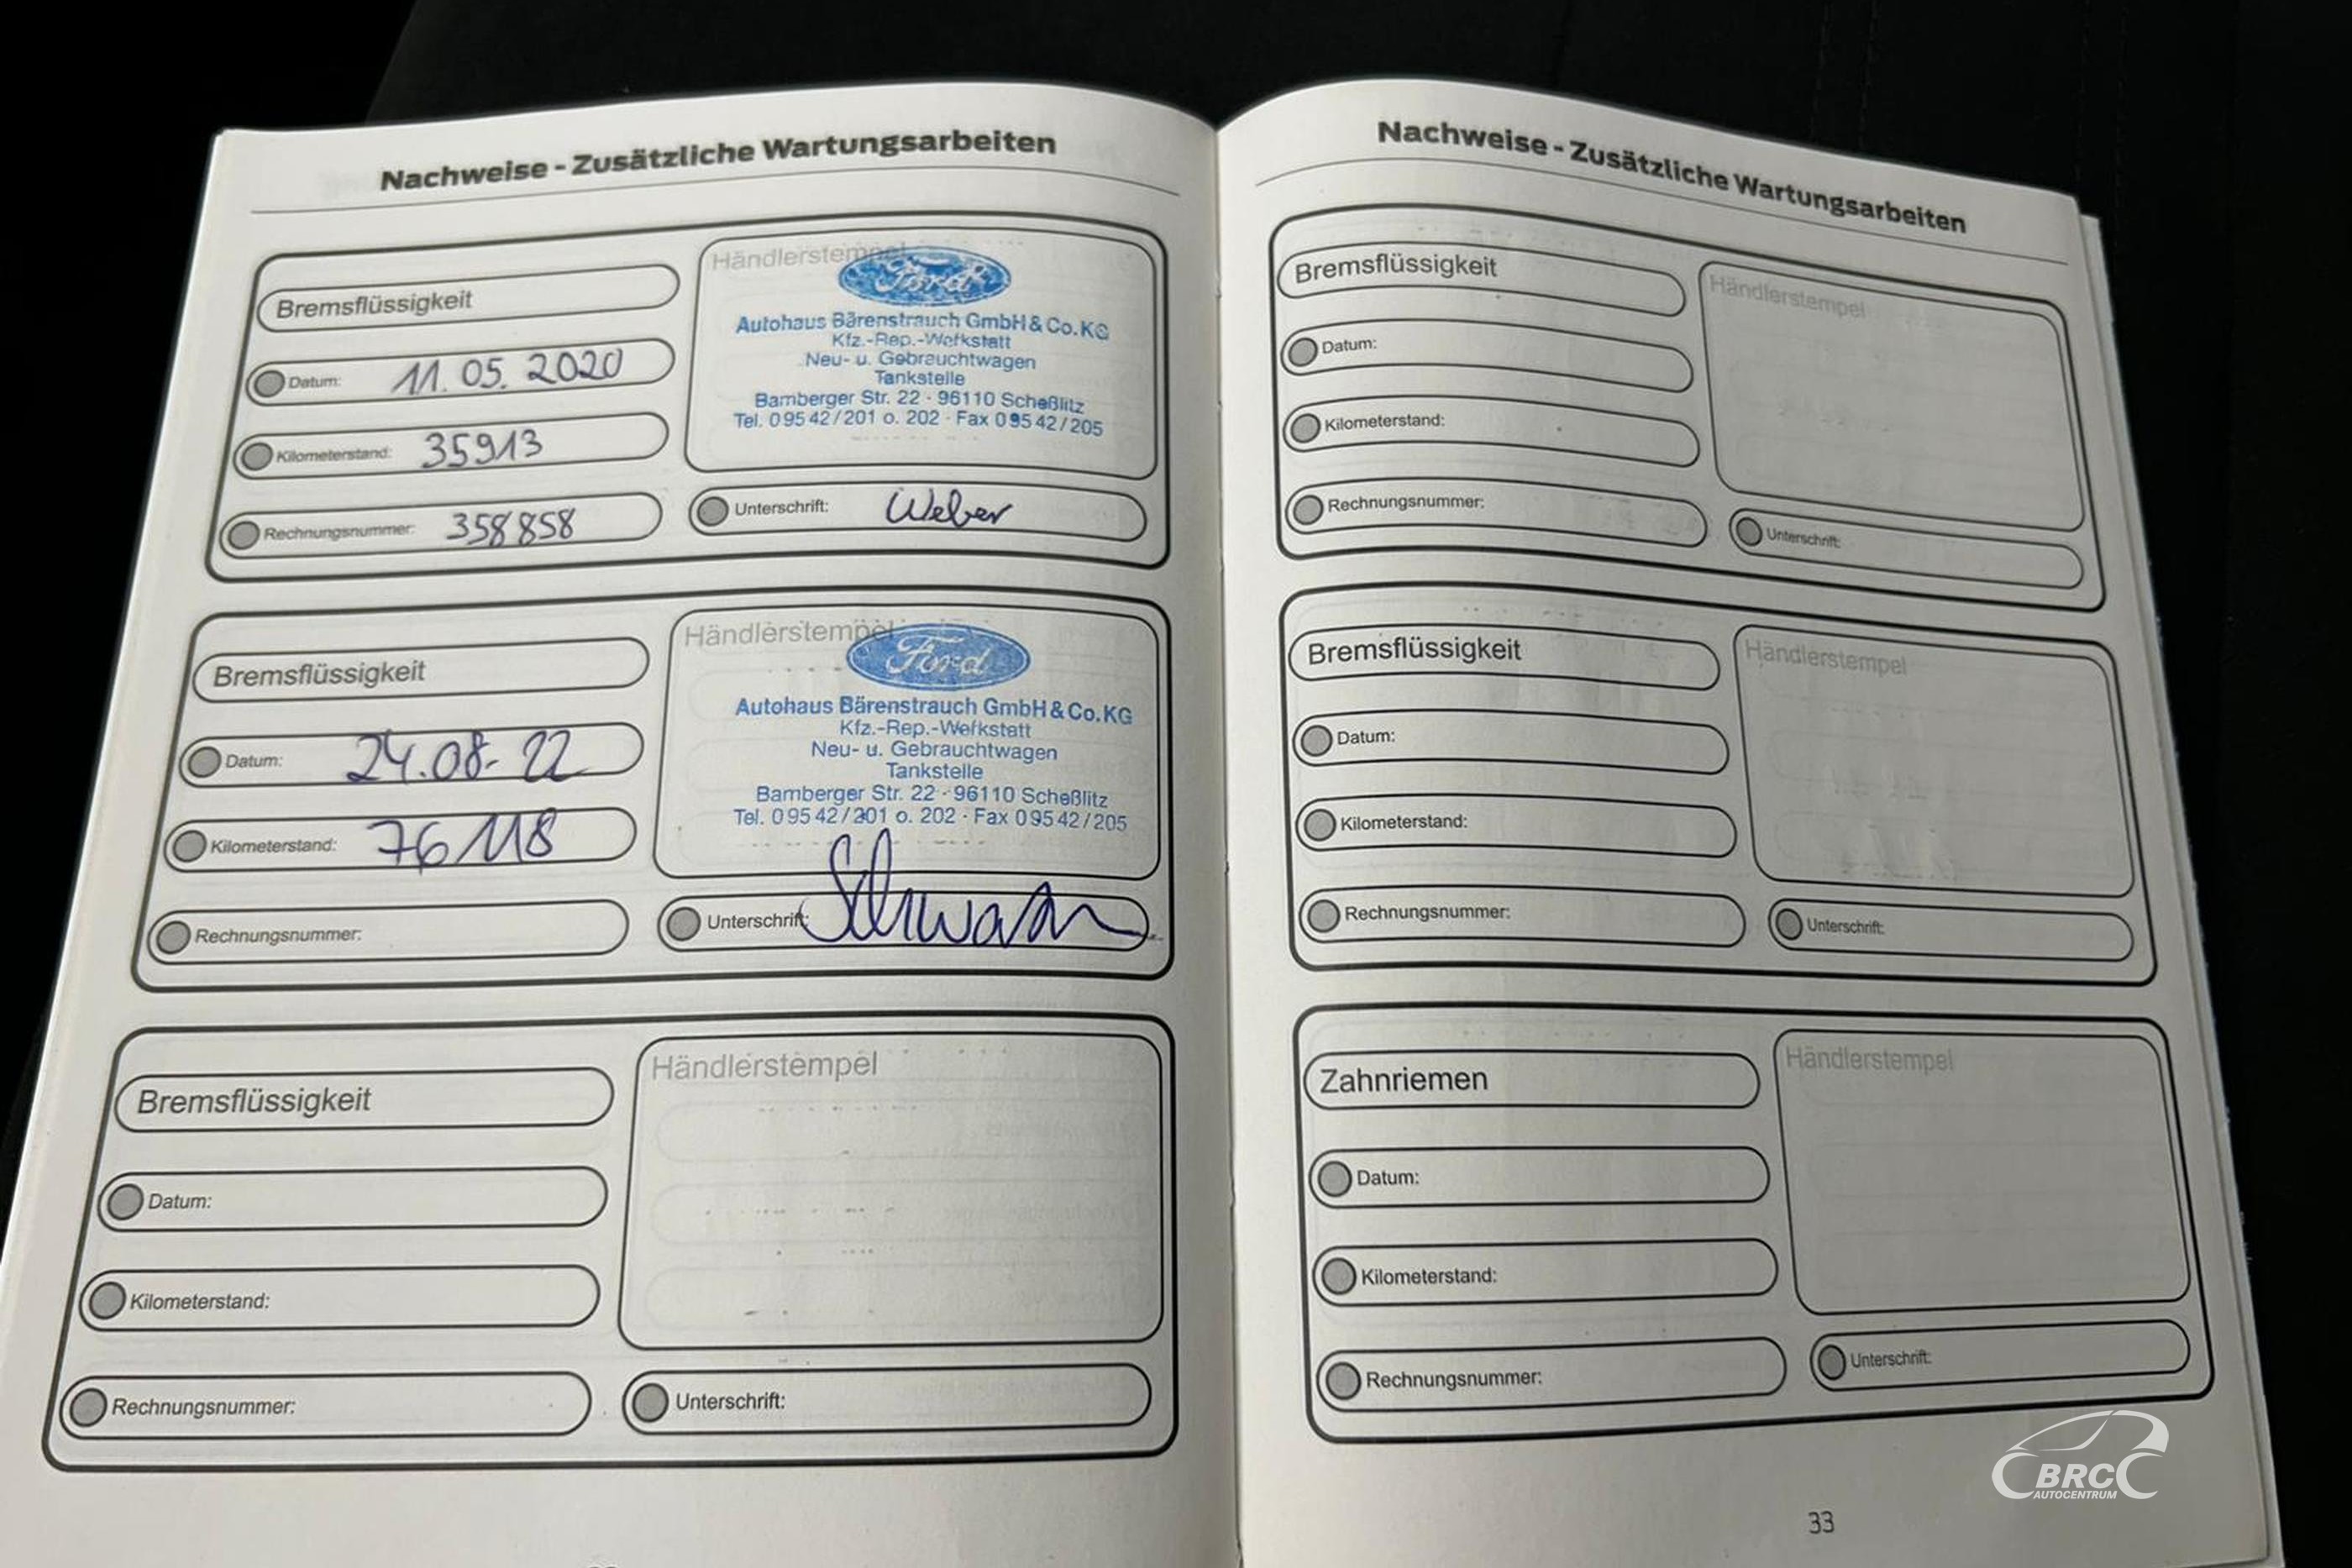 Nachweise - Zusätzliche Wartungsarbeiten
Bremsflüssigkeit
Datum: 11.05.2020
Kilometerstand: 35913
Rechnungsnummer: 358858
Händlerstempel
Ford
Autohaus Bärenstrauch GmbH & Co. KG
Kfz.-Rep.-Werkstatt
Neu- u. Gebrauchtwagen
Tankstelle
Bamberger Str. 22 · 96110 Scheßlitz
Tel. 09542/201 o. 202 · Fax 09542/205
Unterschrift: Weber
Bremsflüssigkeit
Datum: 24.08.22
Kilometerstand: 76118
Rechnungsnummer:
Händlerstempel
Ford
Autohaus Bärenstrauch GmbH & Co. KG
Kfz.-Rep.-Werkstatt
Neu- u. Gebrauchtwagen
Tankstelle
Bamberger Str. 22 · 96110 Scheßlitz
Tel. 09542/201 o. 202 · Fax 09542/205
Unterschrift:
Bremsflüssigkeit
Datum:
Kilometerstand:
Rechnungsnummer:
Händlerstempel
Unterschrift:
Nachweise - Zusätzliche Wartungsarbeiten
Bremsflüssigkeit
Datum:
Kilometerstand:
Rechnungsnummer:
Händlerstempel
Unterschrift:
Bremsflüssigkeit
Datum:
Kilometerstand:
Rechnungsnummer:
Händlerstempel
Unterschrift:
Zahnriemen
Datum:
Kilometerstand:
Rechnungsnummer:
Händlerstempel
Unterschrift:
33
BRC
AUTOCENTRUM